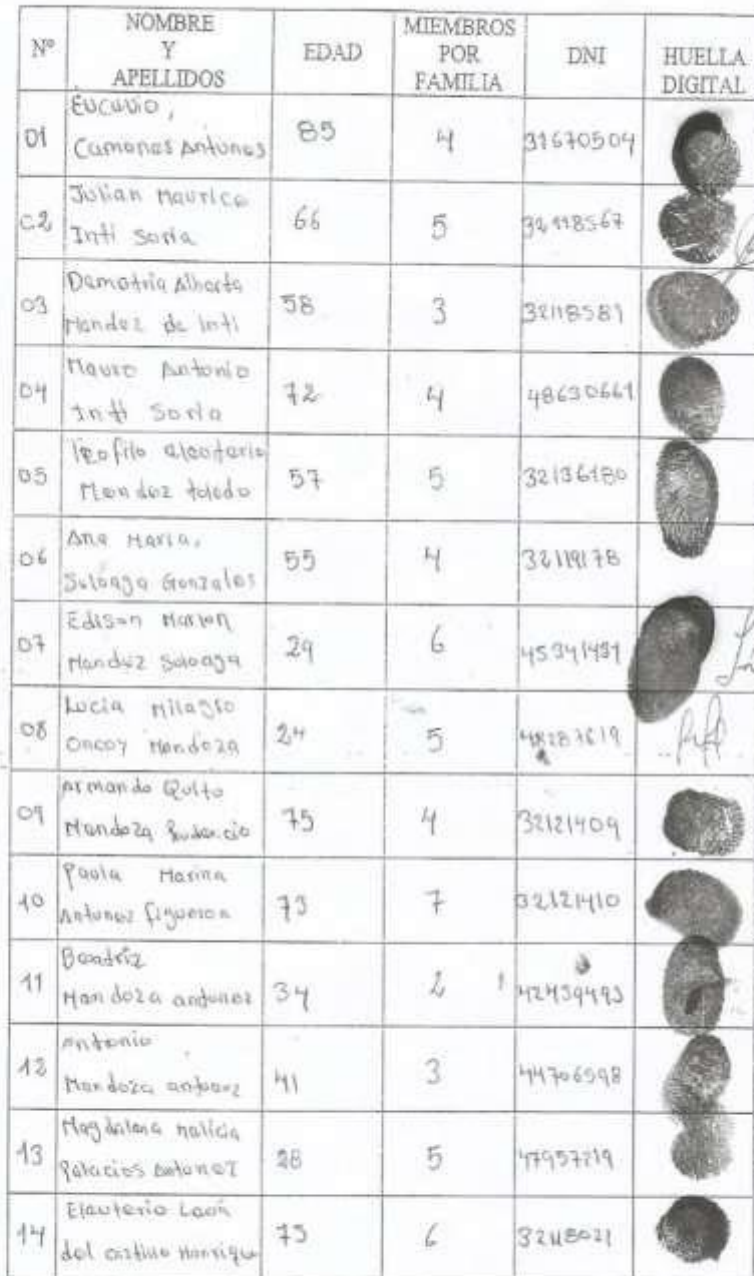 Nº
NOMBRE
Y
APELLIDOS
EDAD
MIEMBROS
POR
FAMILIA
DNI
HUELLA
DIGITAL
01
Camones Antunes
85
4
31670504
02
Julian Maurice
Inti Soria
66
5
03
Demetria Alberta
Mendez de Inti
58
3
32118581
04
Mauro Antonio
Inti Soria
72
4
48630661
05
Mendez toledo
57
5
32136180
06
Ana Maria,
Soloaga Gonzales
55
4
32119178
07
Edison Marlon
Mendez Soloaga
29
6
08
Lucia Milagro
Oncoy Mendoza
24
5
48287619
09
Armando Quito
Mendoza
75
4
32121409
10
Paola Marina
Antunez figueroa
73
7
32121410
11
Beatriz
Mendoza antunez
34
2
42459493
12
Antonio
Mendoza antunez
41
3
44706598
13
Magdalena
Palacios Antunez
28
5
47957219
14
Eleuterio León
del
75
6